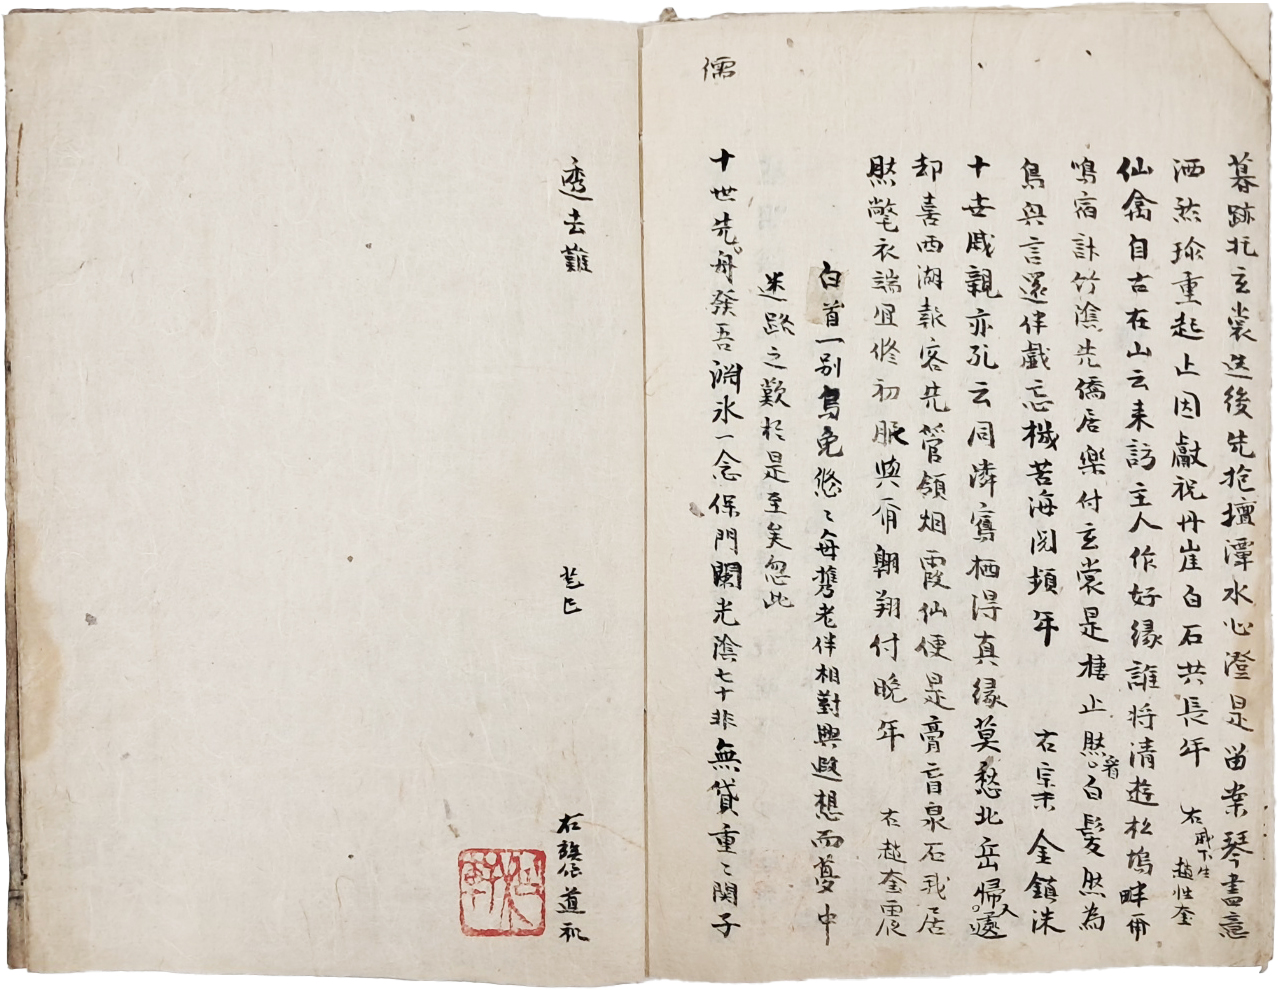 儒
暮跡托玄裳送後先抱壇潭水心澄是留業琴書意
洒然珍重起止因獻祝丹崖白石共長年 右戚下生趙性奎
仙禽自古在山云來訪主人作好緣誰将清趣松塢畔冊
鳴宿計竹陰先僑居樂付玄裳是棲止愁看白髮然為
鳥與言還伴戲忘機苦海閱頻年 右宗末金鎮洙
十世戚親亦孔云同隣寓栖得真緣莫愁北岳歸人遠
却喜西湖報客先管領烟霞仙便是膏盲泉石我居
然氅衣端宜修初服與有翱翔付晚年 右趙奎震
白首一别烏兔悠〻每携老伴相對興遐想而夢中
迷路之歎於是至矣忽此
十世先舟癸吾淵氷一念保門闌光陰七十非無貸重〻関子
透去難
右族侍道礼